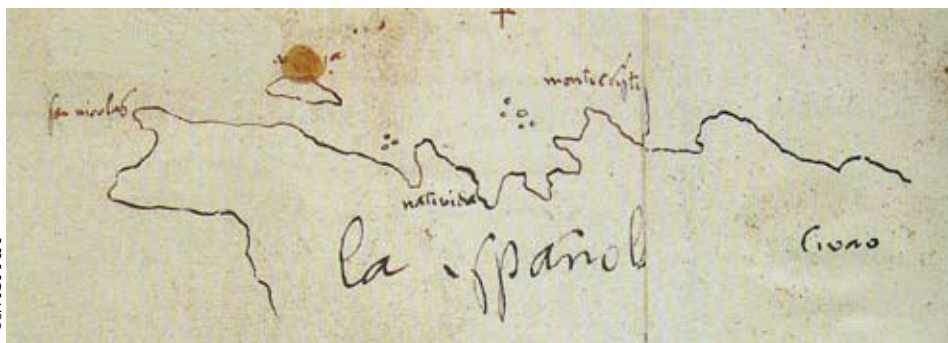 san nicolas
montecristi
natividad
la española
Civao